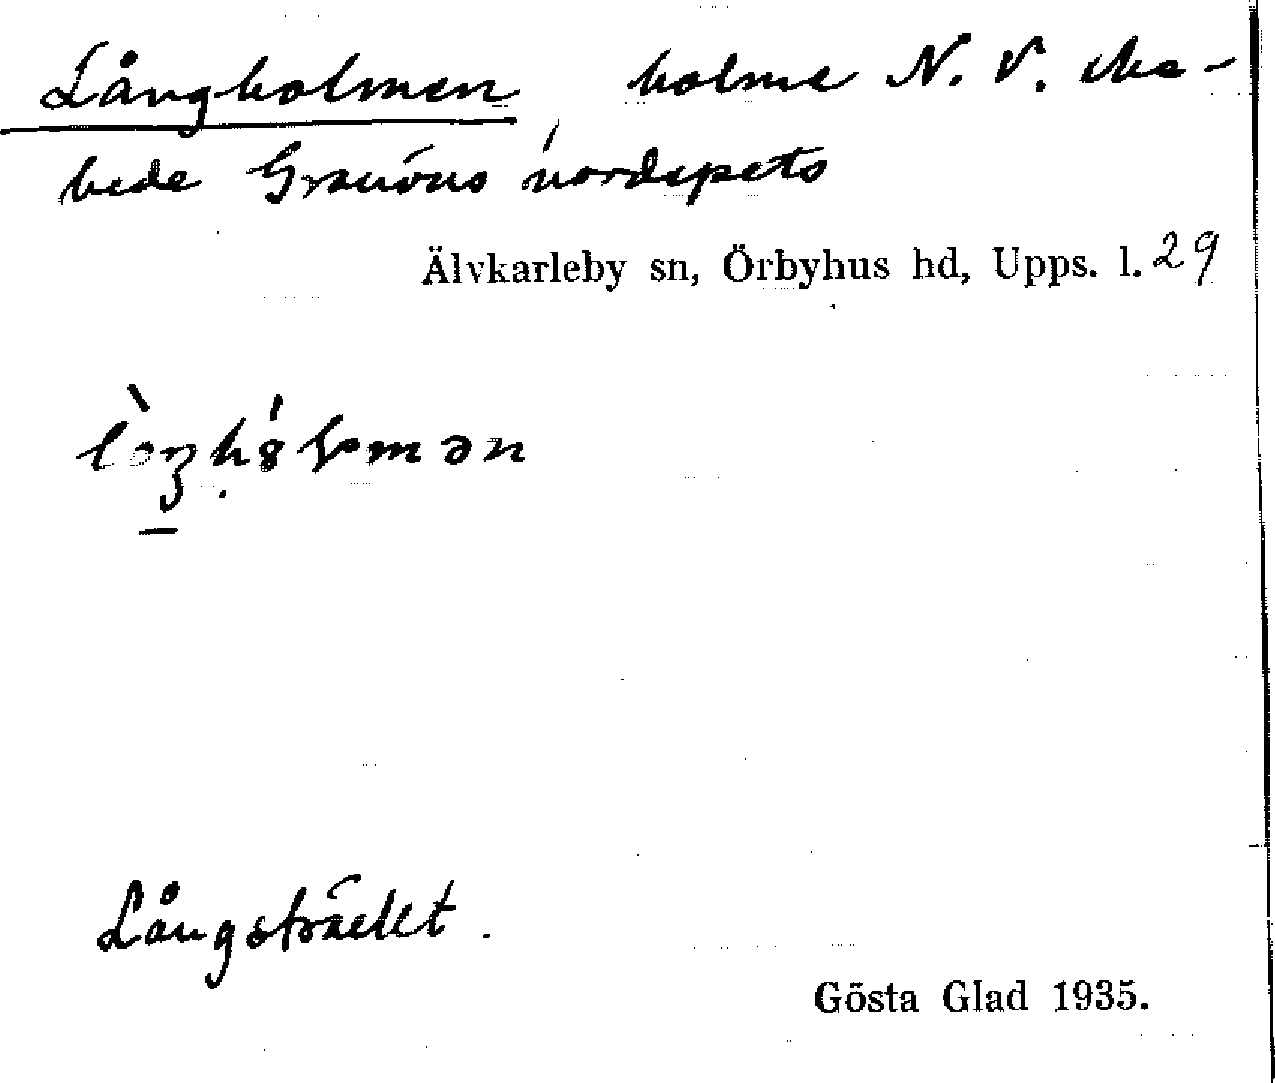 Långholmen holme N. V.
bede Granöns nordspets
Älvkarleby sn, Örbyhus hd, Upps. l. 29
Långsträckt.
Gösta Glad 1935.